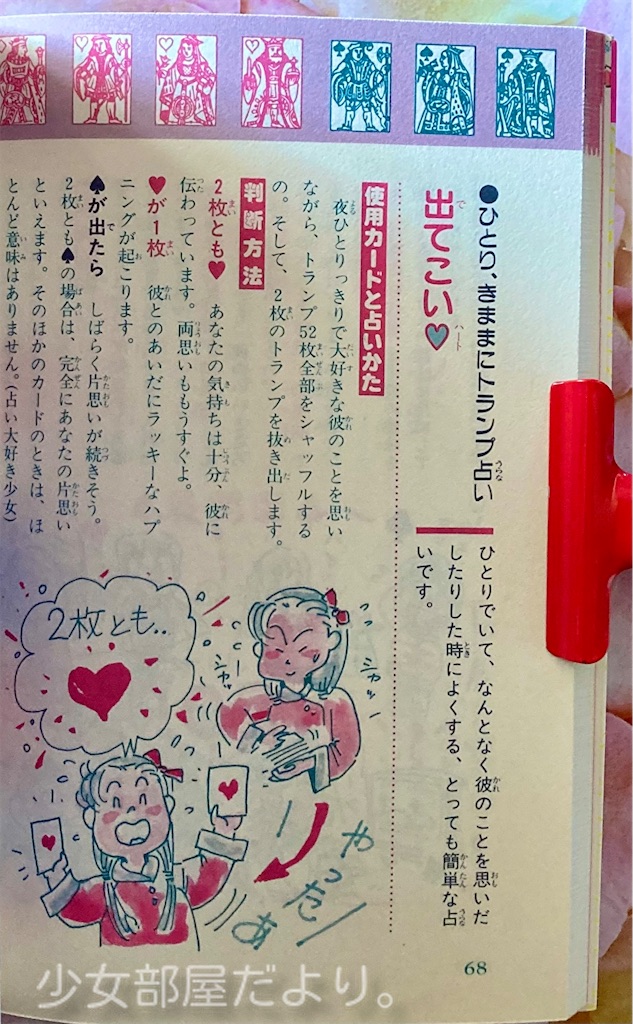 ●ひとり、きままにトランプ占い
出てこい♥
ひとりでいて、なんとなく彼のことを思いだ
したりした時によくする、とっても簡単な占
いです。
使用カードと占いかた
夜ひとりっきりで大好きな彼のことを思い
ながら、トランプ52枚全部をシャッフルする
の。そして、2枚のトランプを抜き出します。
判断方法
2枚とも♥ あなたの気持ちは十分、彼に
伝わっています。両思いももうすぐよ。
♥が1枚 彼とのあいだにラッキーなハプ
ニングが起こります。
♠が出たら しばらく片思いが続きそう。
2枚とも♠の場合は、完全にあなたの片思い
といえます。そのほかのカードのときは、ほ
とんど意味はありません。(占い大好き少女)
シャッ
シャッ
2枚とも..
やったぁ
68
少女部屋だより。